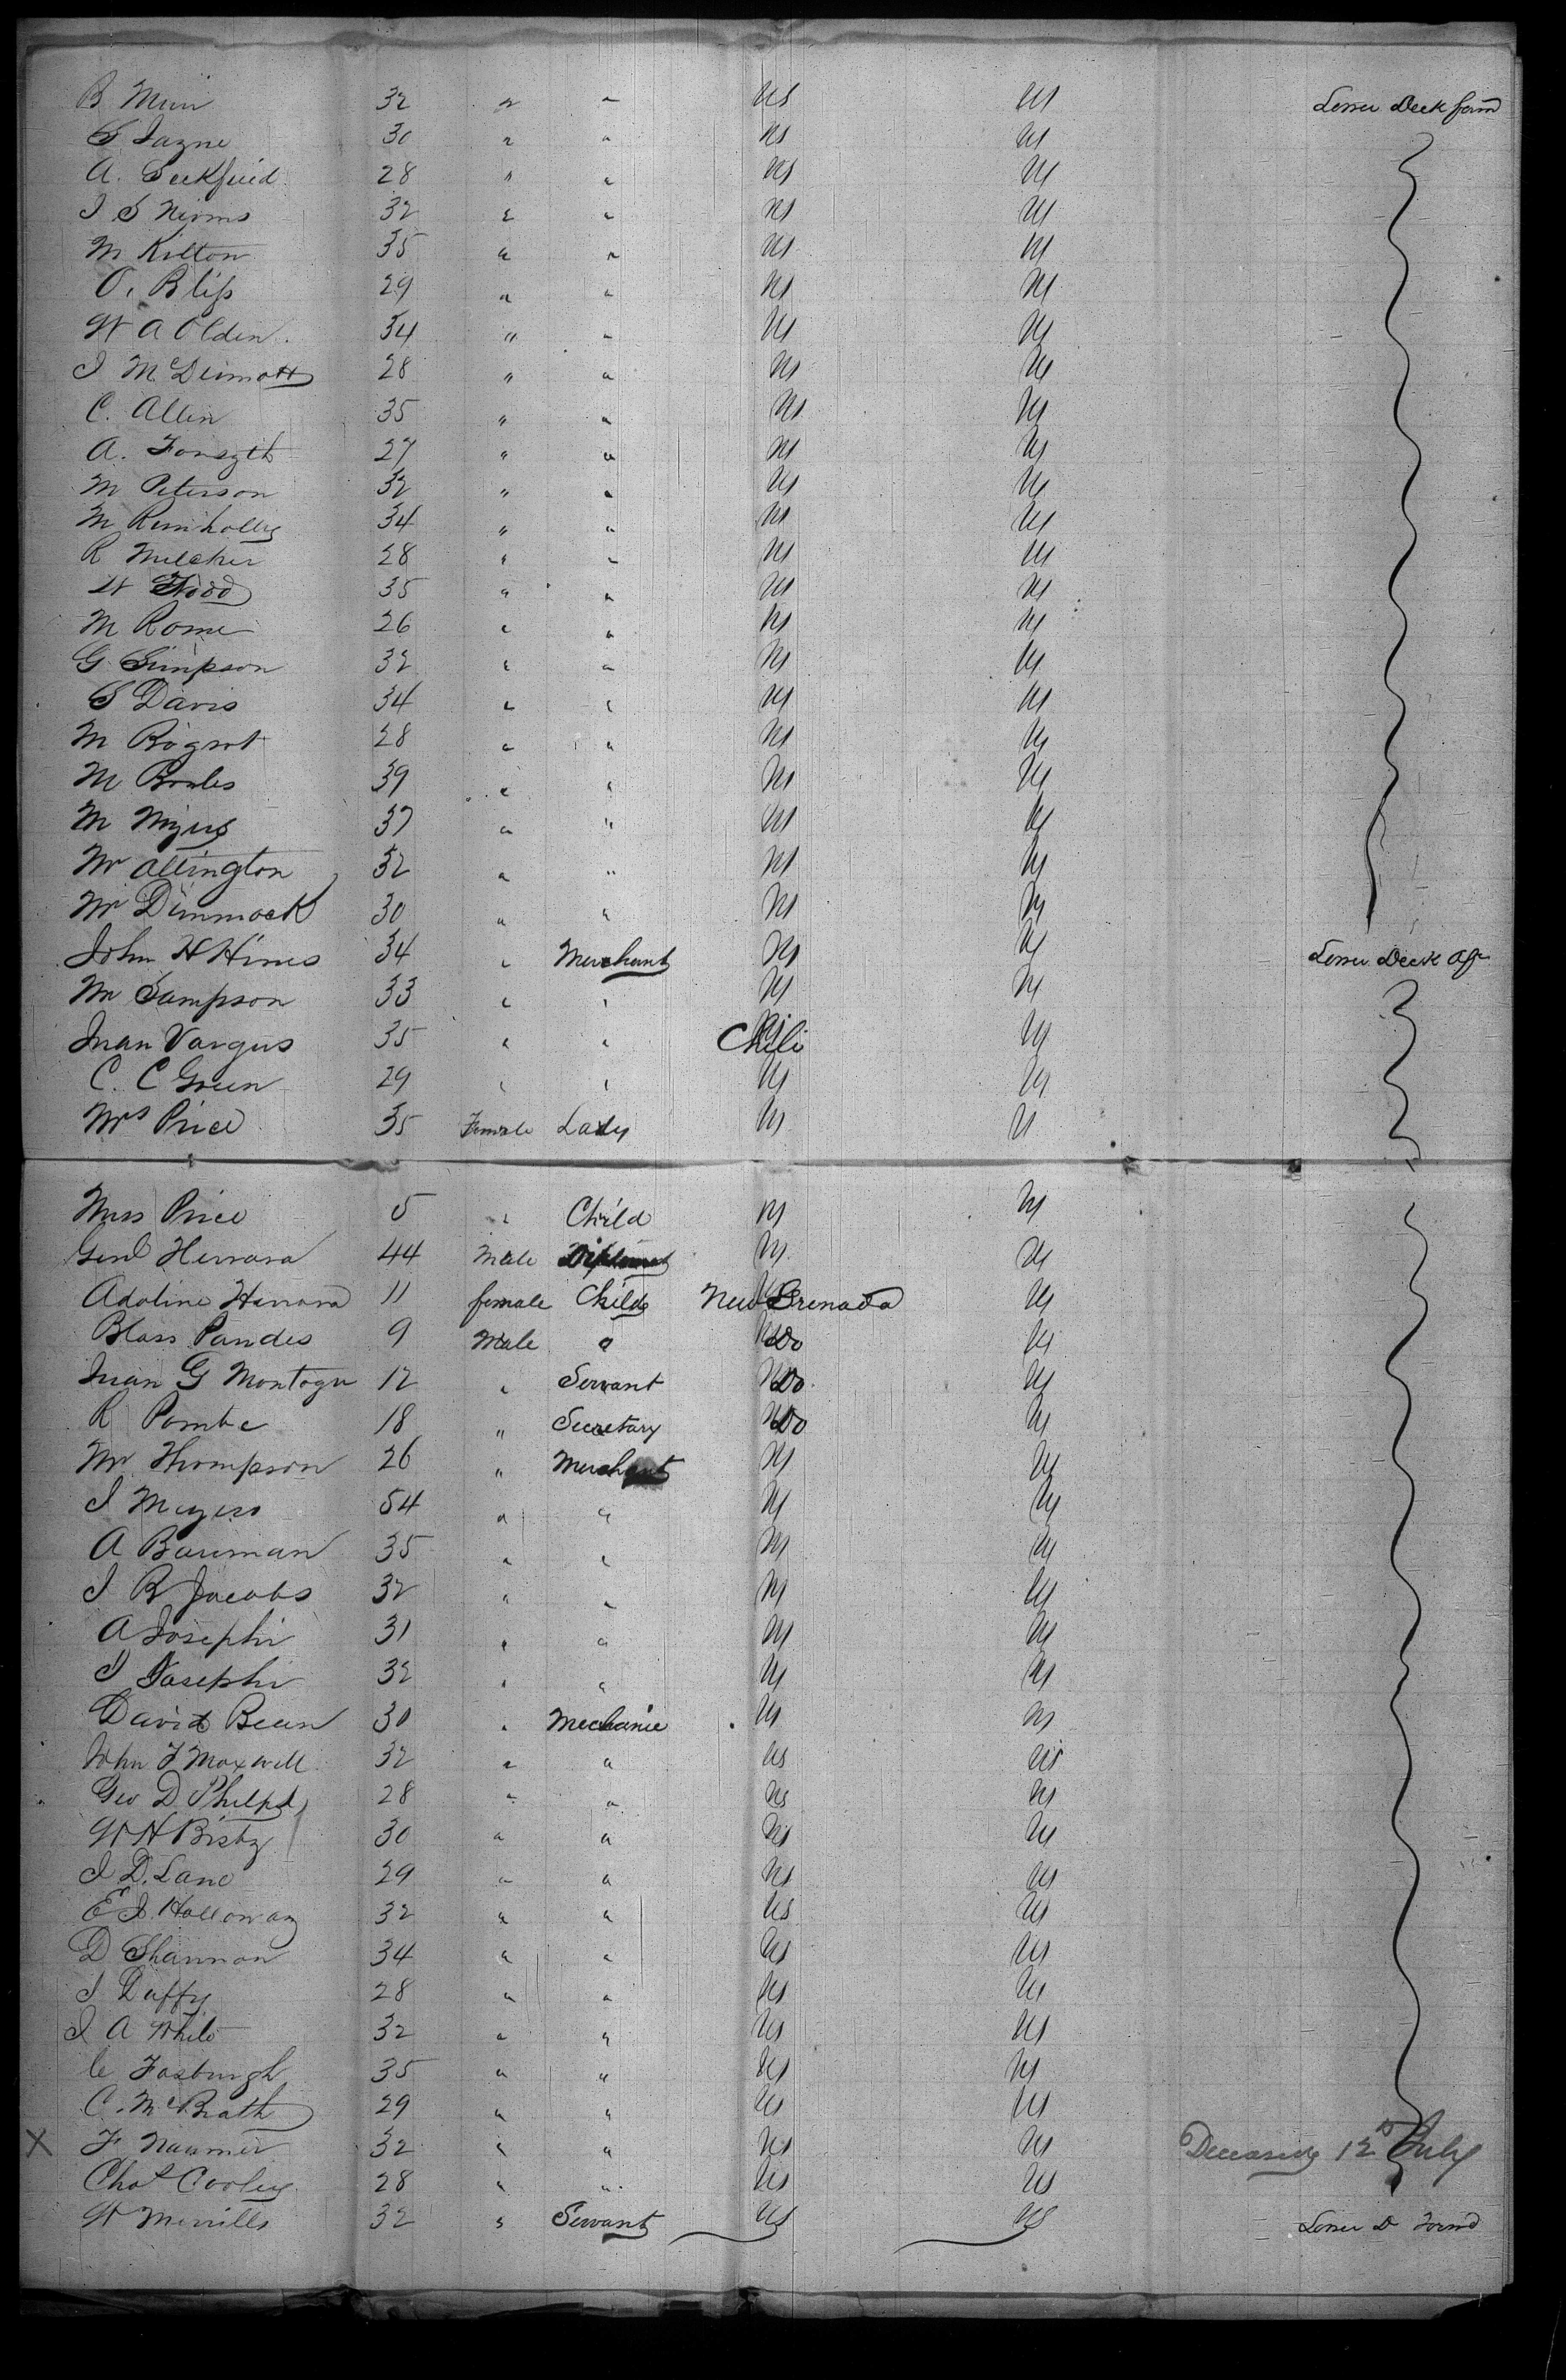 B Muir 32 " " US US Lower Deck forwd
S Jayne 30 " " US US
A. Seckfried 28 " " US US
J S Nizoms 32 " " US US
M Kilton 35 " " US US
O. Bliss 29 " " US US
W A Olden. 34 " " US US
J McDermott 28 " " US US
C. Allen 35 " " US US
A. Forsyth 27 " " US US
M Peterson 32 " " US US
M 34 " " US US
R Melcher 28 " " US US
W 35 " " US US
M Rome 26 " " US US
G Simpson 32 " " US US
S Davis 34 " " US US
M 28 " " US US
M 39 " " US US
M Myers 37 " " US US
Mr Allington 32 " " US US
Mr Dimmock 30 " " US US
John H Hines 34 " Merchant US US Lower Deck Aft
Mr Sampson 33 " " US US
Juan Vargus 35 " " Chili US
C. C Green 29 " " US US
Mrs Price 35 Female Lady US U
Miss Price 5 " Child US US
Genl Herrara 44 Male Diplomat US US
Adaline Harrara 11 female Child New Grenada US
Blass Pandes 9 Male " Do US
Juan G Montoga 12 " Servant Do US
R Pombe 18 " Secretary Do US
Mr Thompson 26 " Merchant US US
J Meyers 54 " " US US
A Bauman 35 " " US US
J B Jacobs 32 " " US US
A Josephi 31 " " US US
I Josephi 32 " " US US
David Bean 30 " Mechanic US US
John F Maxwell 32 " " US US
Geo D Phelps 28 " " US US
W H Bisby 30 " " US US
J D. Lane 29 " " US US
E J. Holloway 32 " " US US
D Shannon 34 " " US US
J Duffy 28 " " US US
J A White 32 " " US US
C Fosburgh 35 " " US US
C. McBrath 29 " " US US
X F Naumer 32 " " US US Deceased 12th July
Chas Cooley 28 " " US US
W Merrills 32 " Servant US US Lower D Forwd